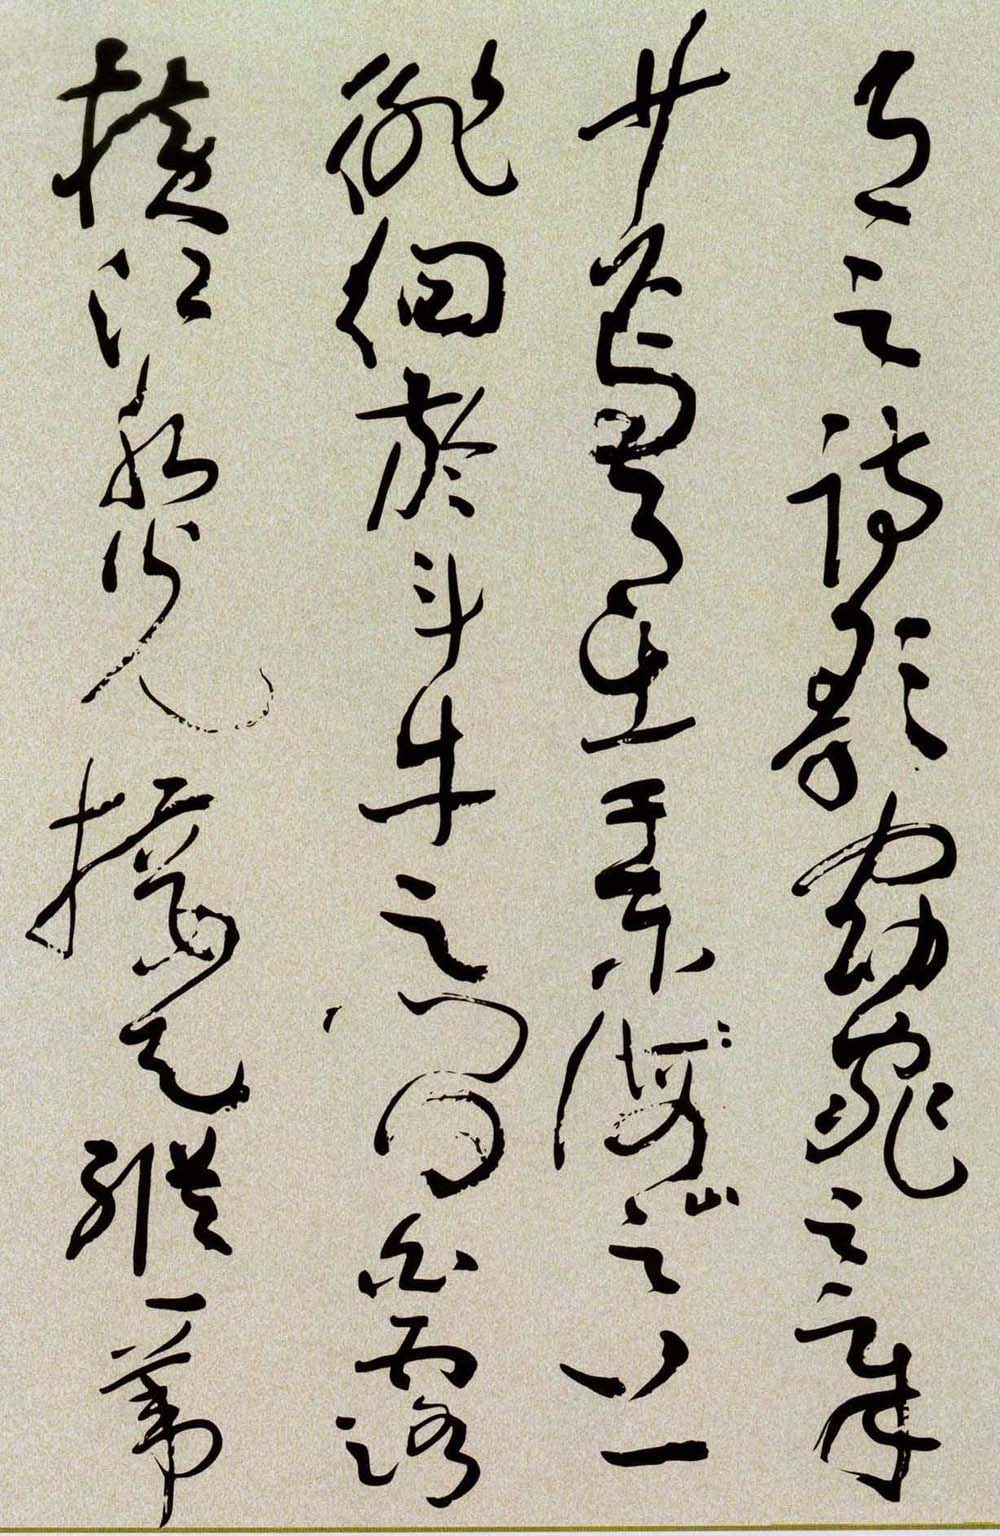 月之詩歌窈窕之章
少焉月出于東海山之上
徘徊於斗牛之間白露
橫江水光接天縱一葦